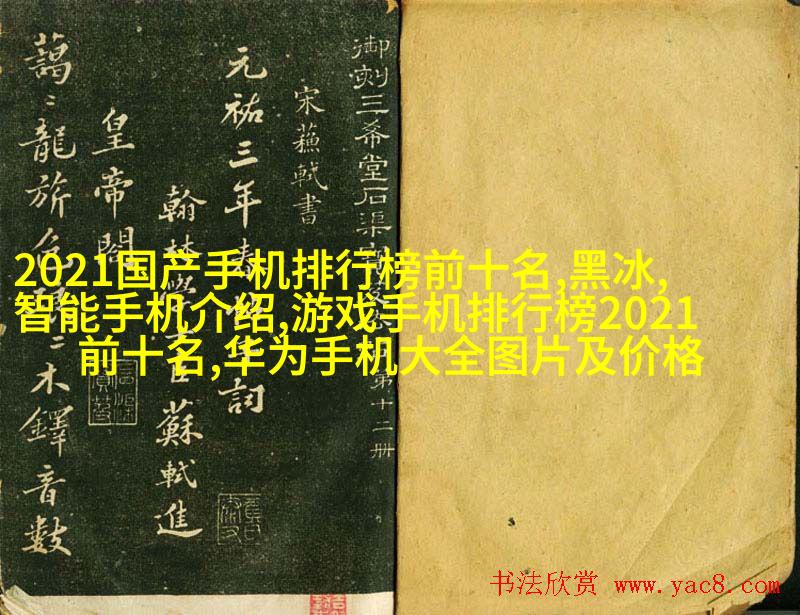 御刻三希堂石渠寶
第十二册
宋蘇軾書
元祐三年春
詞
翰林學士蘇軾進
皇帝閣
藹〻龍旂
木鐸音數
2021国产手机排行榜前十名,黑冰,
智能手机介绍,游戏手机排行榜2021
前十名,华为手机大全图片及价格
书法欣赏 www.yac8.com